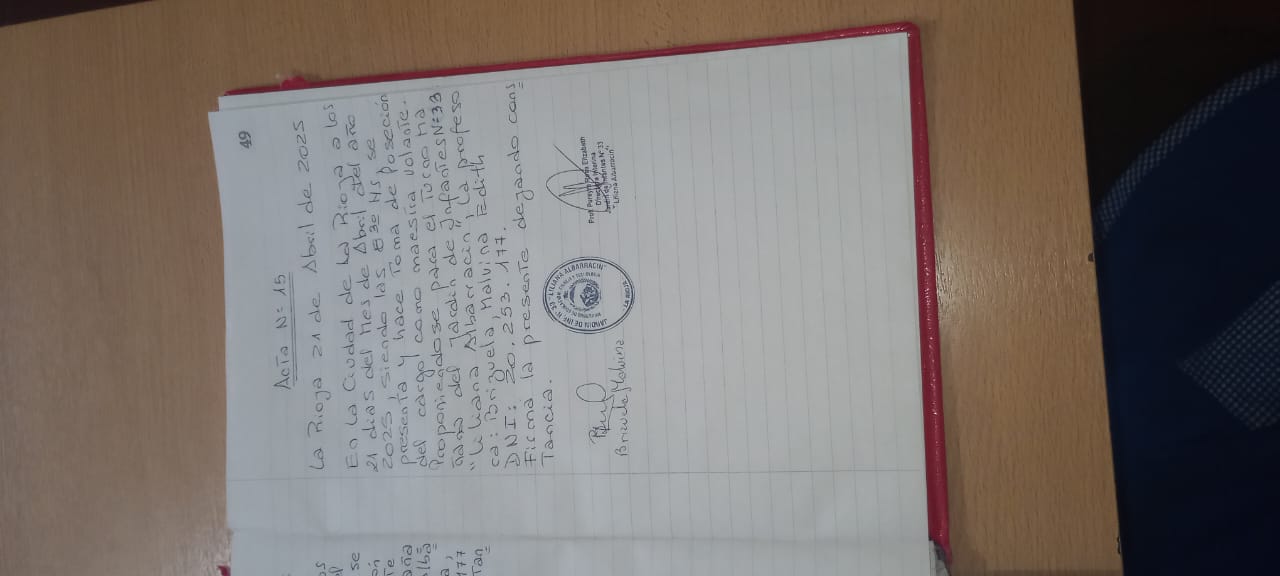 49
Acta N: 15
La Rioja 21 de Abril de 2025
En la Ciudad de La Rioja a los
21 dias del Mes de Abril del año
2025, siendo las 8³⁰ Hs se
presenta y hace Toma de Poseción
del cargo como maestra volante.
Proponiendose para el Turno Ma
ñana del Jardin de Infantes N: 33
"Liliana Albarracin", la profeso
ra: Brizuela, Malvina Edith
DNI: 20.253.177.
Firma la presente dejando cons=
Tancia.
Brizuela Malvina
JARDIN DE INF. N° 33 "LILIANA ALBARRACIN"
LA RIOJA
Prof. Elizabeth
Directora Interina
Jardín de Infantes N° 33
"Liliana Albarracín"
os
el
se
ón
te
aña
alba=
a,
177
Tan=